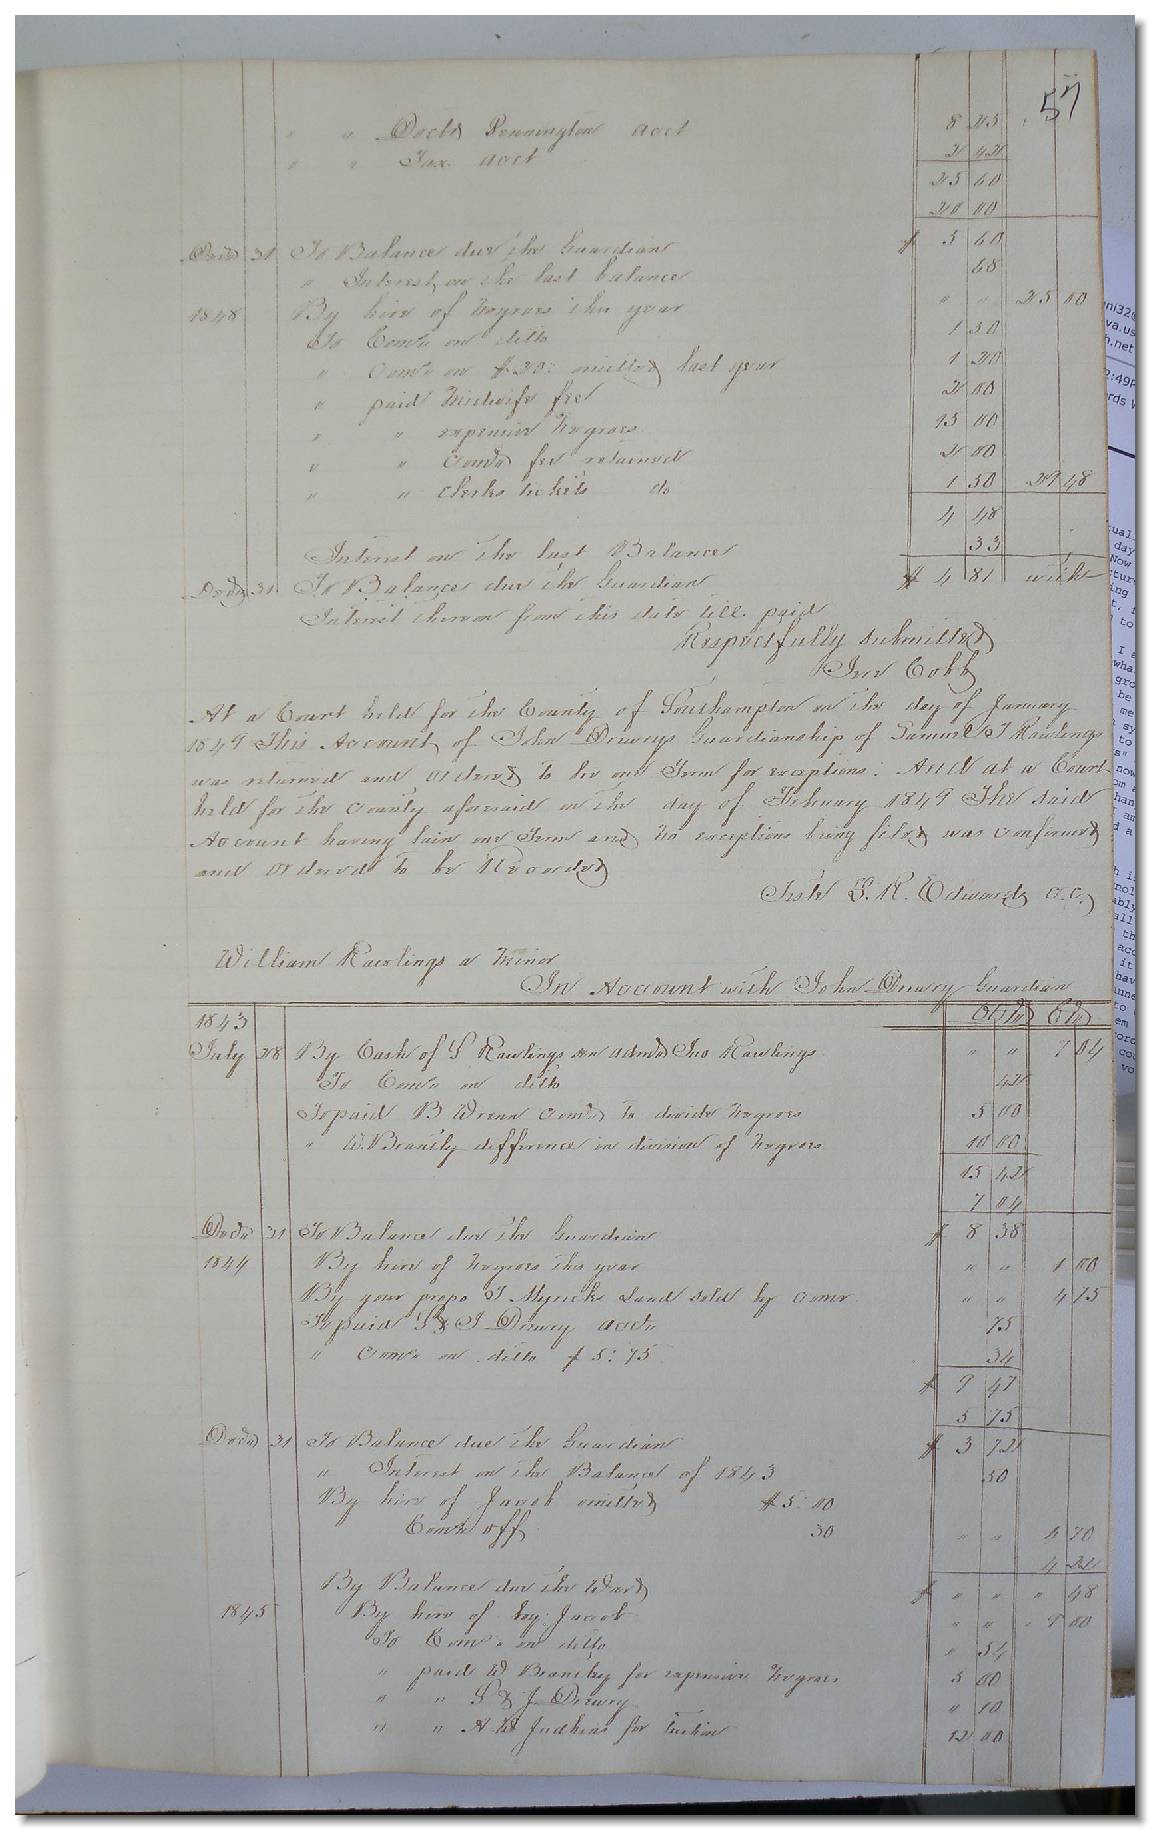 57
" " Doctr Pennington acct 8 25
" " Tax acct 2 42
25 60
20 00
Decr 31 To Balance due the Guardian $ 5 60
" Interest on the last balance 68
1848 By hire of Negroes this year " " 25 00
To Coms on ditto 1 50
" Coms on $20: omitted last year 1 20
" paid Midwife fee 2 00
" " expensive Negroes 15 00
" " Comr fee retained 2 00
" " Clerks tickets do 1 50 29 48
4 48
Interest on the last Balance 33
Decr 31 To Balance due the Guardian $ 4 81 with
Interest thereon from this date till paid
Respectfully submitted
Jno Cobb
At a Court held for the County of Southampton on the day of January
1849 This Account of John Drewrys Guardianship of Samuel T Rawlings
was returned and ordered to lie one Term for exceptions. And at a Court
held for the County aforesaid on the day of February 1849 The said
Account having lain one Term and no exceptions being filed was confirmed
and ordered to be Recorded
Teste L. R. Edwards C.C.
William Rawlings a Minor
In Account with John Drewry Guardian
1843 Dr Cr
July 28 By Cash of S Rawlings son admr Jno Rawlings " " 7 04
To Coms on ditto 42
To paid B Wrenn Comr to divide Negroes 5 00
" W. Brantly difference in division of Negroes 10 00
15 42
7 04
Decr 31 To Balance due the Guardian $ 8 38
1844 By hire of Negroes this year " " 1 00
By your propo T Myricks Land sold by Comr " " 4 75
To paid S & J Drewry acct 75
" Coms on ditto $5:75 34
$ 9 47
5 75
Decr 31 To Balance due the Guardian $ 3 72
" Interest on the Balance of 1843 50
By hire of Jacob omitted $5:00
Coms off 30 " " 4 70
4 22
By Balance due the Ward $ " " " 48
1845 By hire of boy Jacob " " 9 00
To Coms on ditto " 54
" paid W Brantley for expensive Negroes 5 00
" " S & J. Drewry " 10
" " A W Judkins for Tuition 12 00